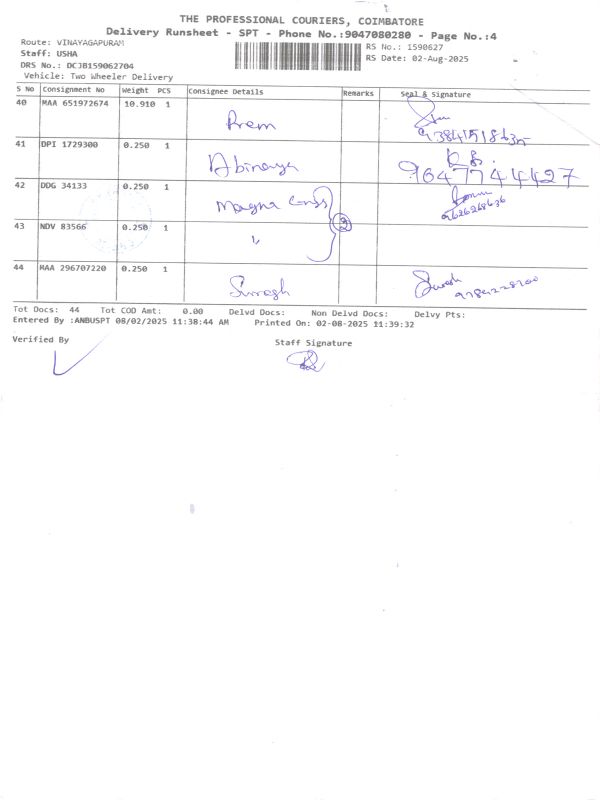 THE PROFESSIONAL COURIERS, COIMBATORE
Delivery Runsheet - SPT - Phone No.:9047080280 - Page No.:4
Route: VINAYAGAPURAM
RS No.: 1590627
Staff: USHA
RS Date: 02-Aug-2025
DRS No.: DCJB159062704
Vehicle: Two Wheeler Delivery
S No Consignment No Weight PCS Consignee Details Remarks Seal & Signature
40 MAA 651972674 10.910 1 Prem
41 DPI 1729300 0.250 1 Abinaya 9647744427
42 DDG 34133 0.250 1 Magna 9626268636
43 NDV 83566 0.250 1 " 2
44 MAA 296707220 0.250 1 Suresh Suresh
Tot Docs: 44 Tot COD Amt: 0.00 Delvd Docs: Non Delvd Docs: Delvy Pts:
Entered By :ANBUSPT 08/02/2025 11:38:44 AM Printed On: 02-08-2025 11:39:32
Verified By Staff Signature